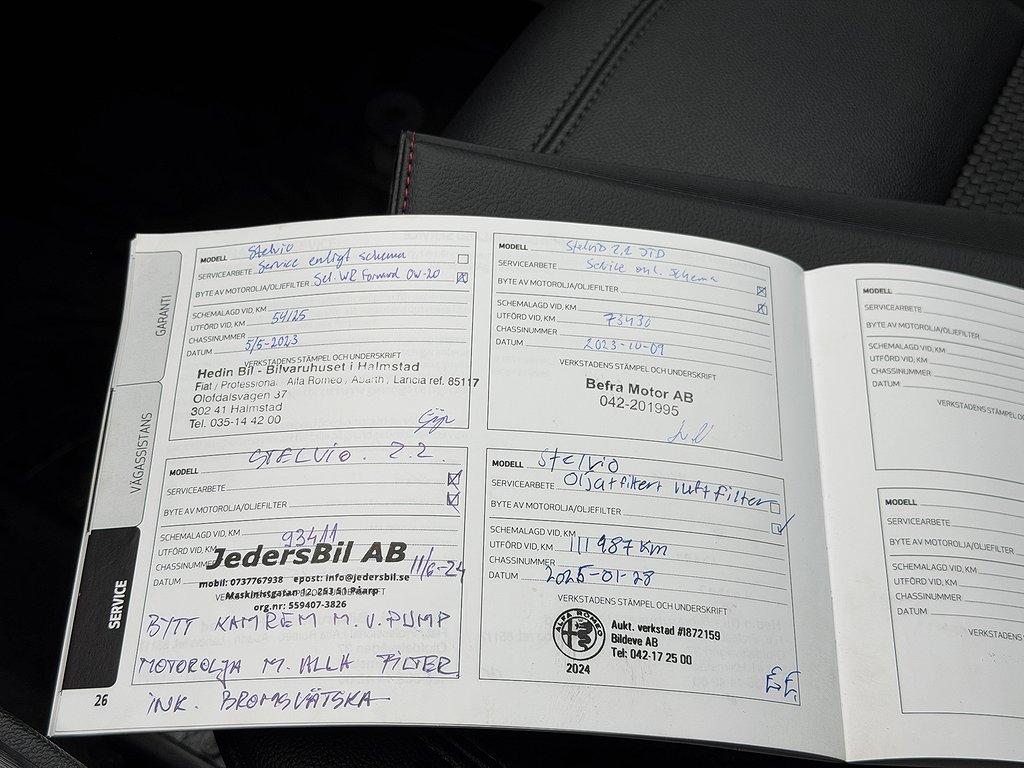 GARANTI
VÄGASSISTANS
SERVICE
26
MODELL Stelvio
SERVICEARBETE Service enligt schema
BYTE AV MOTOROLJA/OLJEFILTER Sel. WR Forward 0W-20
SCHEMALAGD VID, KM
UTFÖRD VID, KM 54125
CHASSINUMMER
DATUM 5/5-2023
VERKSTADENS STÄMPEL OCH UNDERSKRIFT
Hedin Bil - Bilvaruhuset i Halmstad
Fiat / Professional Alfa Romeo / Abarth / Lancia ref. 85117
Olofdalsvägen 37
302 41 Halmstad
Tel. 035-14 42 00
MODELL Stelvio 2,2 JTD
SERVICEARBETE Service enl. schema
BYTE AV MOTOROLJA/OLJEFILTER
SCHEMALAGD VID, KM
UTFÖRD VID, KM 73430
CHASSINUMMER
DATUM 2023-10-09
VERKSTADENS STÄMPEL OCH UNDERSKRIFT
Befra Motor AB
042-201995
MODELL STELVIO. 2.2.
SERVICEARBETE
BYTE AV MOTOROLJA/OLJEFILTER
SCHEMALAGD VID, KM
UTFÖRD VID, KM 93411
CHASSINUMMER
DATUM 11/6-24
JedersBil AB
mobil: 0737767938 epost: info@jedersbil.se
Maskinistgatan 12, 253 51 Påarp
org.nr: 559407-3826
BYTT KAMREM M. V. PUMP
MOTOROLJA M. ALLA FILTER
INK. BROMSVÄTSKA
MODELL Stelvio
SERVICEARBETE Oljatfilter luftfilter
BYTE AV MOTOROLJA/OLJEFILTER
SCHEMALAGD VID, KM
UTFÖRD VID, KM 111 987 Km
CHASSINUMMER
DATUM 2025-01-28
VERKSTADENS STÄMPEL OCH UNDERSKRIFT
ALFA ROMEO
2024
Aukt. verkstad #I872159
Bildeve AB
Tel: 042-17 25 00
EE
MODELL
SERVICEARBETE
BYTE AV MOTOROLJA/OLJEFILTER
SCHEMALAGD VID, KM
UTFÖRD VID, KM
CHASSINUMMER
DATUM
VERKSTADENS STÄMPEL O
MODELL
SERVICEARBETE
BYTE AV MOTOROLJA/OLJEFILTER
SCHEMALAGD VID, KM
UTFÖRD VID, KM
CHASSINUMMER
DATUM
VERKSTADENS